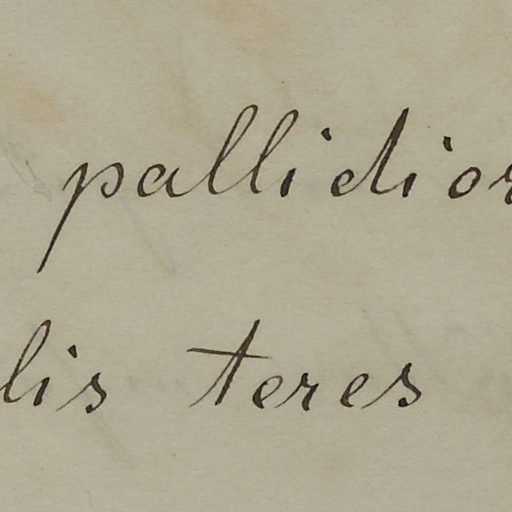 pallidior
lis teres